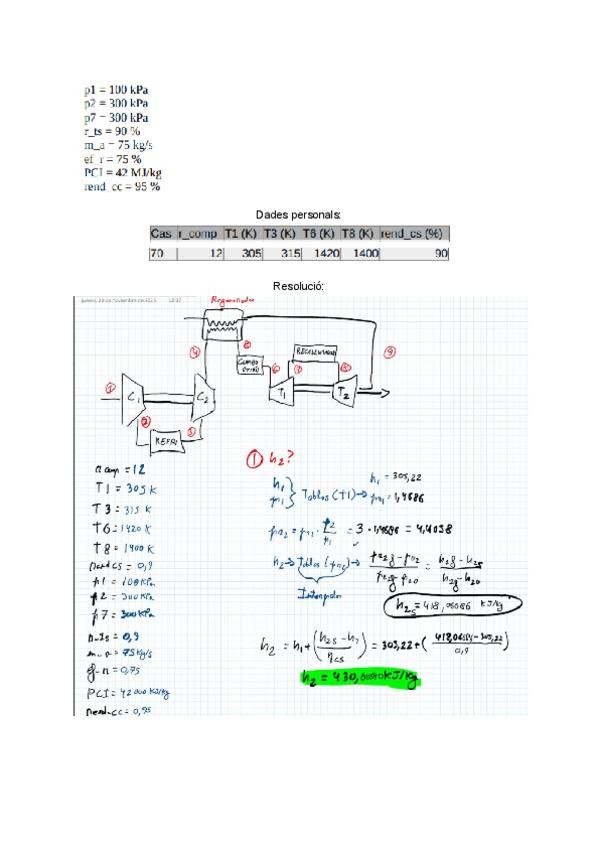 p1 = 100 kPa
p2 = 300 kPa
p7 = 300 kPa
r_ts = 90 %
m_a = 75 kg/s
ef_r = 75 %
PCI = 42 MJ/kg
rend_cc = 95 %
Dades personals:
Cas r_comp T1 (K) T3 (K) T6 (K) T8 (K) rend_cs (%)
70 12 305 315 1420 1400 90
Resolució:
Regenerador
4 5 9
REESCALENTADOR
6 7 8
1 C1 C2 T1 T2
2 3
REFRI
r comp = 12
T1 = 305 K
T3 = 315 K
T6 = 1420 K
T8 = 1400 K
rend cs = 0,9
p1 = 100 kPa
p2 = 300 kPa
p7 = 300 kPa
r_ts = 0,9
m_a = 75 kg/s
ef_r = 0,75
PCI = 42000 KJ/kg
rend_cc = 0,95
① h2?
h1 } Tablas (T1) → h1 = 305,22
pr1 pr1 = 1,4686
pr2 = pr1 · p2/p1 = 3 · 1,4686 = 4,4058
h2 → Tablas (pr2) →
Interpolar
h2s = 418,06086 KJ/kg
h2 = h1 + ((h2s - h1)/ηcs) = 305,22 +
0,9